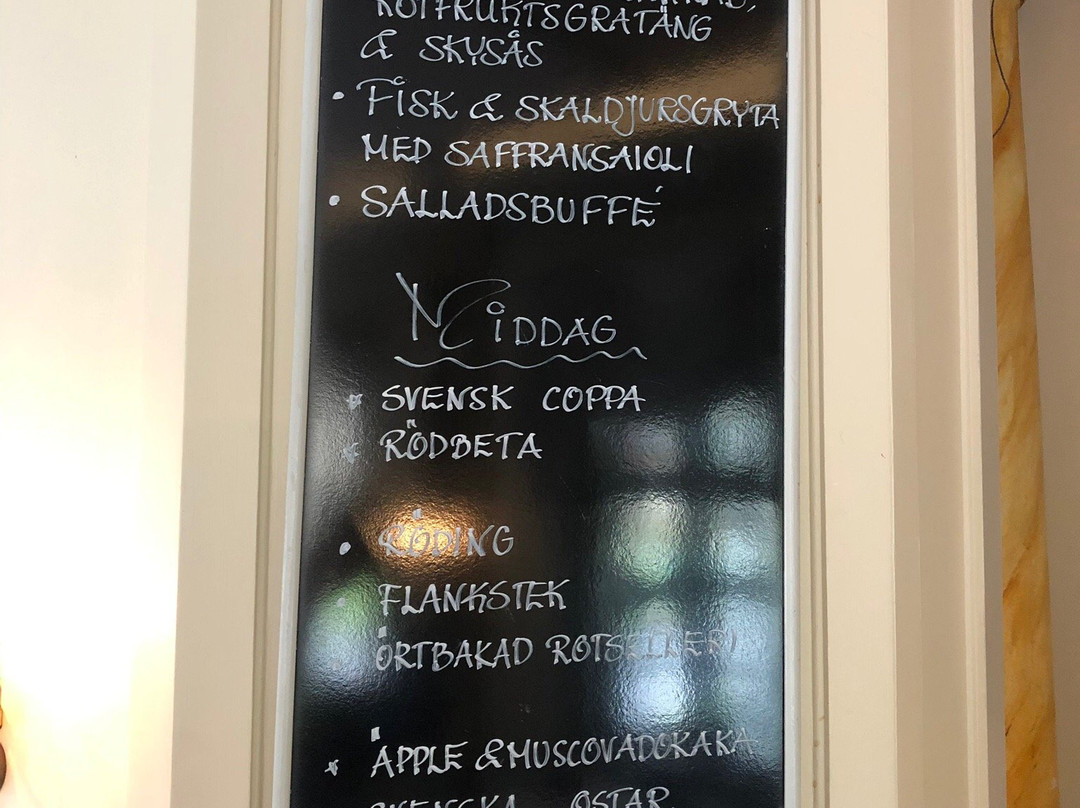 ROTFRUKTSGRATÄNG
& SKYSÅS
• FISK & SKALDJURSGRYTA
MED SAFFRANSAIOLI
• SALLADSBUFFÉ
MIDDAG
* SVENSK COPPA
* RÖDBETA
• RÖDING
• FLANKSTEK
ÖRTBAKAD ROTSELLERI
* ÄPPLE & MUSCOVADOKAKA
SVENSKA OSTAR